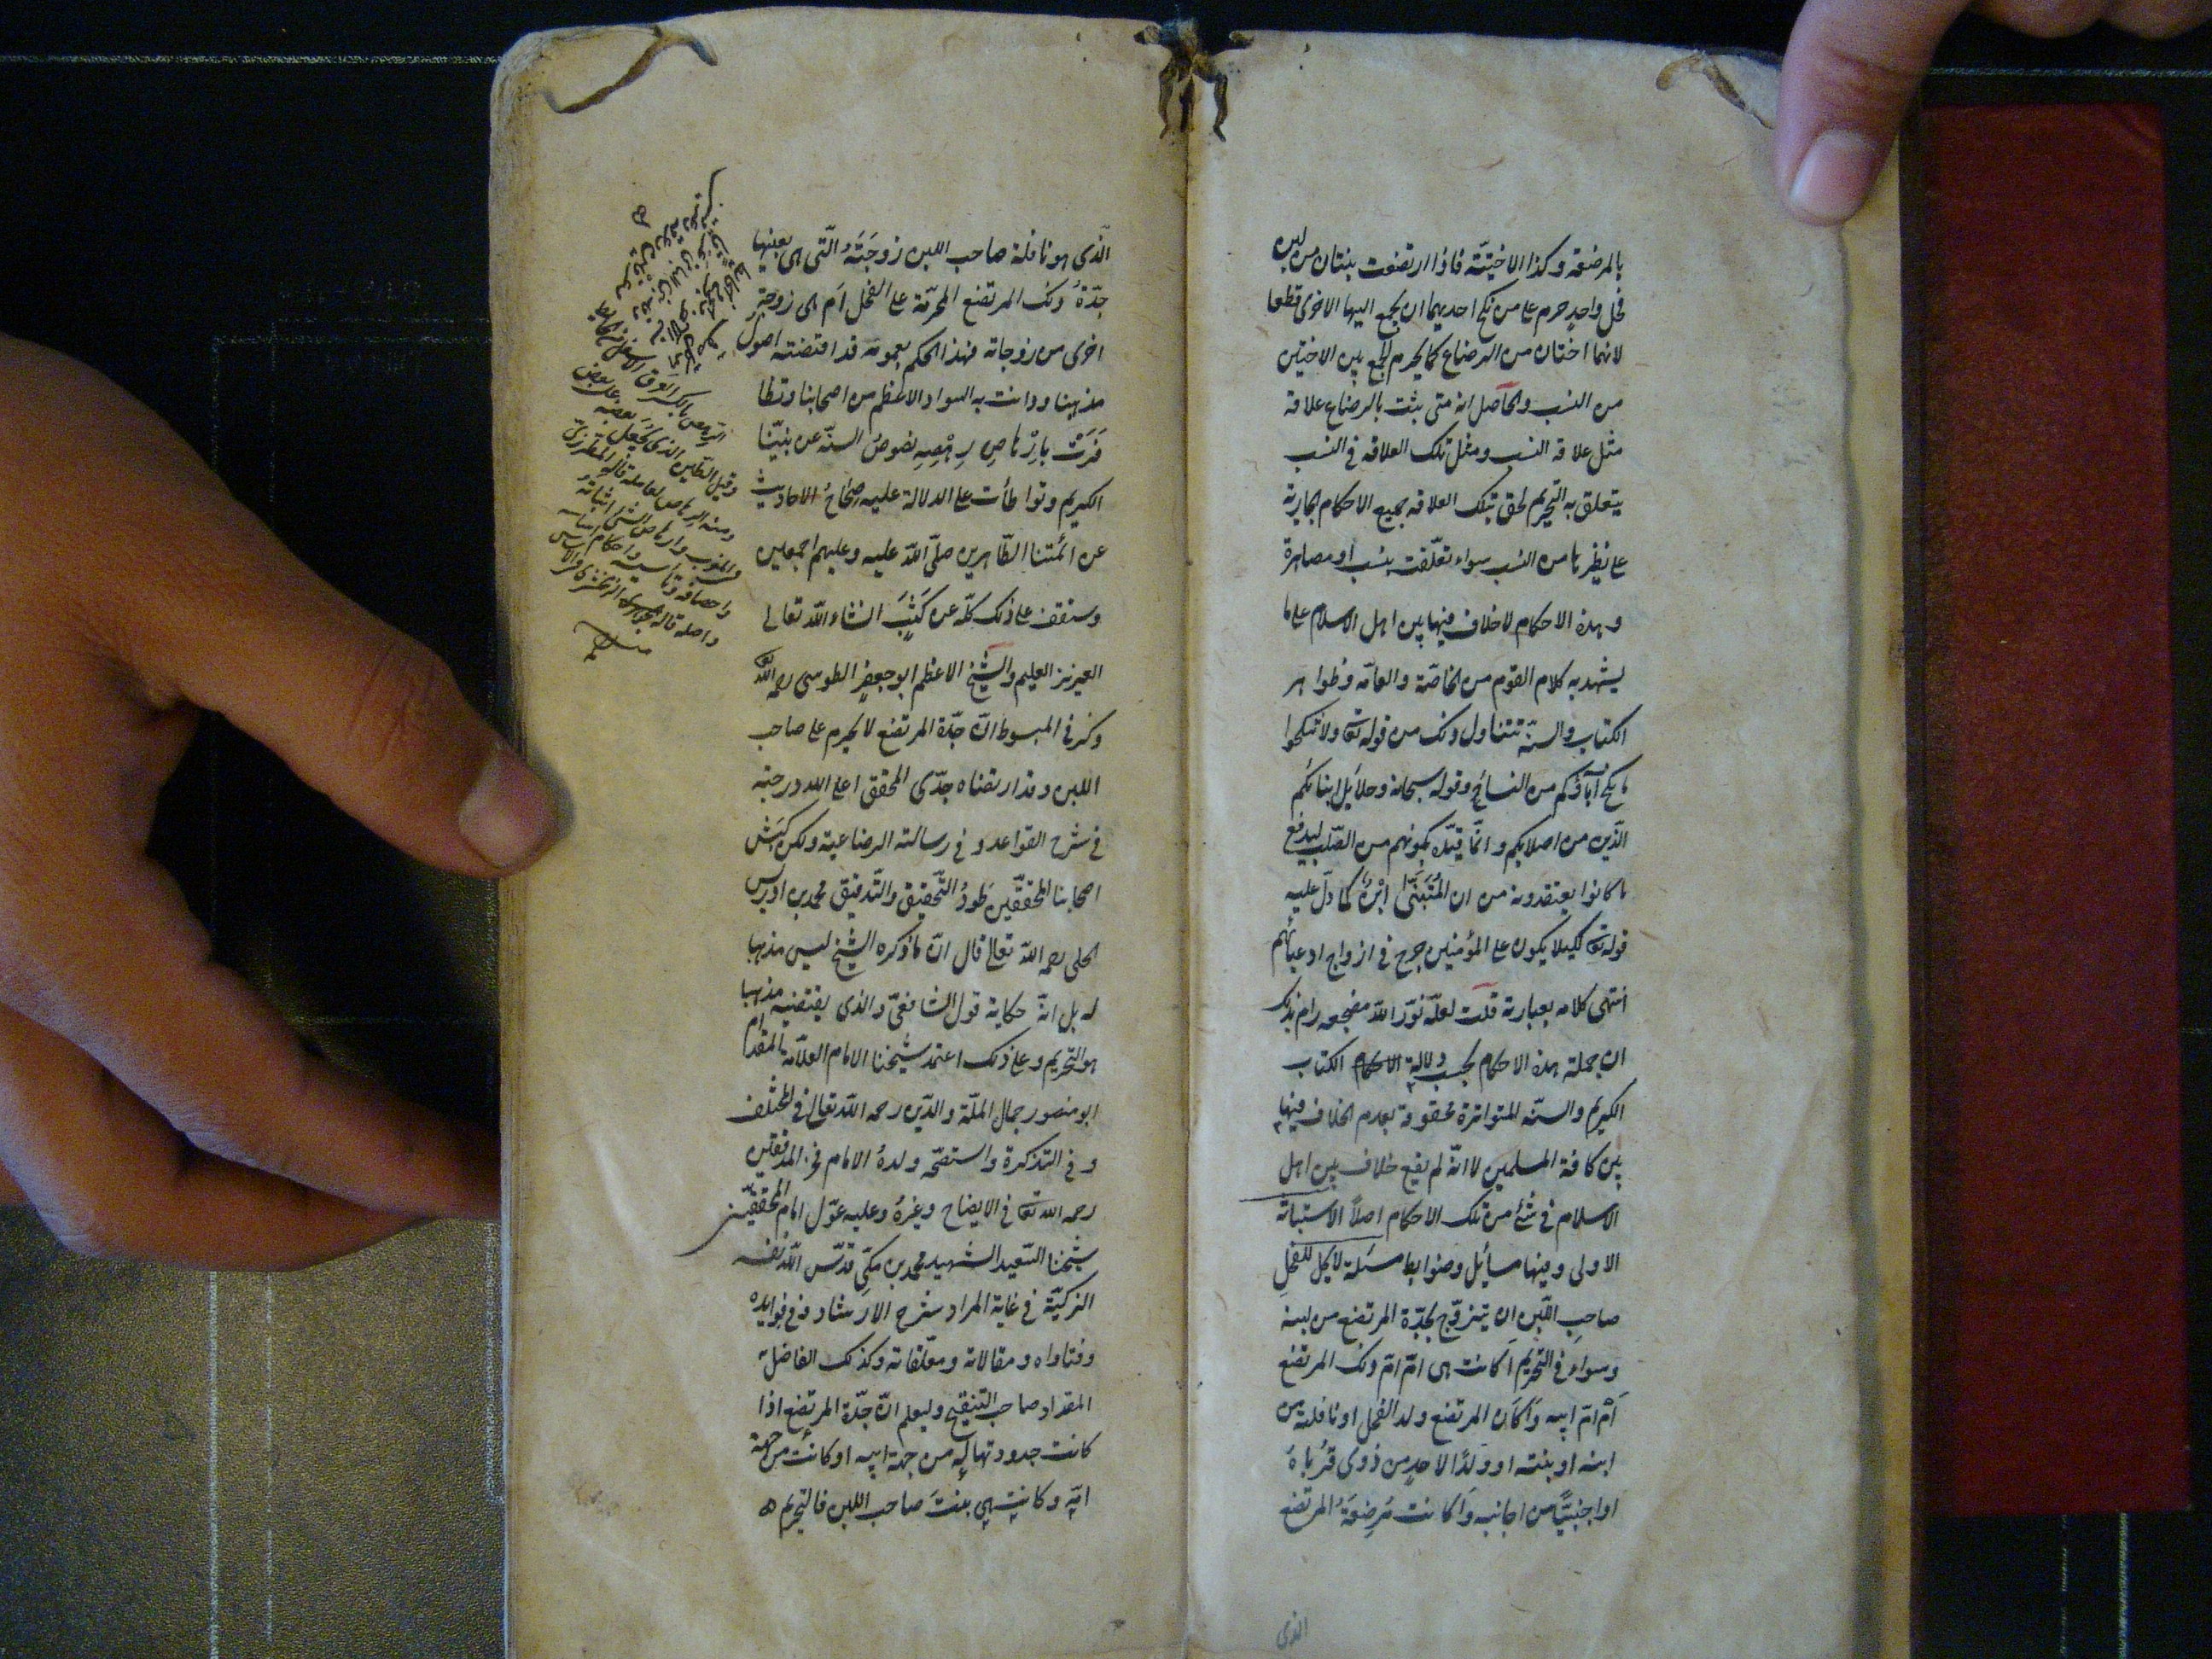 بالمرضعة وكذا الاختية فاذا ارتضعت بنتان من لبن
فحل واحد حرم على من نكح احديهما ان يجمع اليها الاخرى قطعا
لانهما اختان من الرضاع كما يحرم الجمع بين الاختين
من النسب والحاصل انه متى ثبت بالرضاع علاقة
مثل علاقة النسب ومثل تلك العلاقة فى النسب
يتعلق به التحريم لحق بتلك العلاقة جميع الاحكام الجارية
على نظيرها من النسب سواء تعلّقت بنسب او مصاهرة
وهذه الاحكام لا خلاف فيها بين اهل الاسلام على ما
يشهد به كلام القوم من الخاصّة والعامّة وظواهر
الكتاب والسنّة تتناول ذلك من قوله تعا ولا تنكحوا
ما نكح آباؤكم من النساء وقوله سبحانه وحلائل ابنائكم
الّذين من اصلابكم وانّما قيّده بكونهم من الصّلب ليدفع
ما كانوا يعتقدونه من ان المُتَبَنّى ابْنٌ كما دلّ عليه
قوله تعا لكيلا يكون على المؤمنين حرج فى ازواج ادعيائهم
انتهى كلامه بعبارته قلت لعلّه نوّر اللّه مضجعه رام بذلك
ان جملة هذه الاحكام بحسب دلالة الاحكام الكتاب
الكريم والسنّة المتواترة محقوقة بعدم الخلاف فيها
بين كافة المسلمين لا انّه لم يقع خلاف بين اهل
الاسلام فى شئ من تلك الاحكام اصلاً الاستبانة
الاولى وفيها مسائل وضوابط مسئلة لا يحل للفحل
صاحب اللّبن ان يتزوّج بجدّة المرتضع من لبنه
وسواء فى التحريم أكانت هى امّ امّ ذلك المرتضع
أم امّ ابيه وأكان المرتضع ولد الفحل او نافلته من
ابنه او بنته او ولدًا لاحدٍ من ذوى قُرباهُ
او اجنبيًّا من اجانبه وأكانت مُرضِعَةُ المرتضع
الذى
الّذى هو نافلة صاحب اللبن زوجَتَهُ الّتى هى بعينها
جدّةُ ذلك المرتضع المحرّمة على الفحل أم هى زوجة
اخرى من زوجاته فهذا الحكم بعمومه قد اقتضته اصول
مذهبنا ودانت به السواد الاعظم من اصحابنا وتظا
فَرَتْ بإرْهاصِ رِهْصِهِ نصوصُ السنّة عن نبيّنا
الكريم وتواطأت على الدلالة عليه صِحَاحُ الاحاديث
عن ائمّتنا الطّاهرين صلّى اللّه عليه وعليهم اجمعين
وستقف على ذلك كلّه عن كَثَبَ انشاء اللّه تعالى
العزيز العليم والشّيخ الاعظم ابو جعفر الطوسى رحمه اللّه
ذكر فى المبسوط انّ جدّة المرتضع لا يحرم على صاحب
اللبن وقد ارتضاه جدّى المحقق اعلى اللّه درجته
فى شرح القواعد وفى رسالته الرضاعية ولكن كَبَش
اصحابنا المحققين طَودُ التّحقيق والتّدقيق محمد بن ادريس
الحلى رحمه اللّه تعالى قال انّ ما ذكره الشّيخ ليس مذهبا
له بل انّه حكاية قول الشافعىّ والذى يقتضيه مذهبنا
هو التحريم وعلى ذلك اعتمد شيخنا الامام العلّامة المقدام
ابو منصور جمال الملّة والدّين رحمه اللّه تعالى فى المختلف
وفى التذكرة واستصحّه ولدهُ الامام فخر المدققين
رحمه اللّه تعا فى الايضاح وغيرهُ وعليه عوّل امام المحققين
شيخنا السّعيد الشّهيد محمد بن مكّى قدّس اللّه نفسه
الزكيّة فى غاية المراد شرح الارشاد وفى فوايده
وفتاواه ومقالاته ومعلّقاته وكذلك الفاضل
المقداد صاحب التنقيح وليعلم انّ جدّة المرتضع اذا
كانت جدودتها له من جهة ابيه او كانت من جهة
امّه وكانت هى بنتَ صاحب اللبن فالتحريم
الرهص بالكسر العِرق الاسفل من الحايط
وقيل الطّين الذى يُجعل بعضه على بعض
ومنه الرهاص لعامله قاله المطرزى